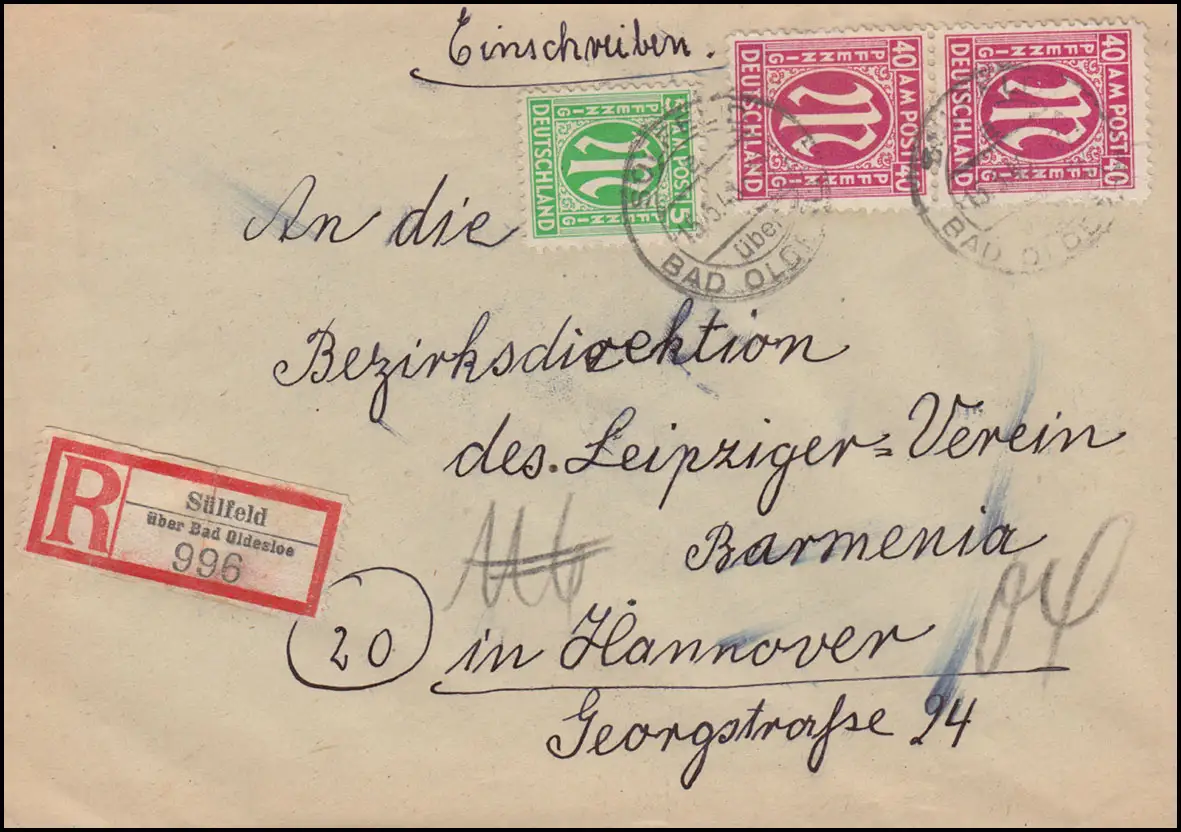 Einschreiben.
5 AM POST 5
PFENNIG
PFENNIG
DEUTSCHLAND
40 AM POST 40
PFENNIG
PFENNIG
DEUTSCHLAND
40 AM POST 40
PFENNIG
PFENNIG
DEUTSCHLAND
über
BAD OLDE
BAD OLDE
An die
Bezirksdirektion
des. Leipziger=Verein
Barmenia
in Hannover
Georgstraße 24
R
Sülfeld
über Bad Oldesloe
996
20